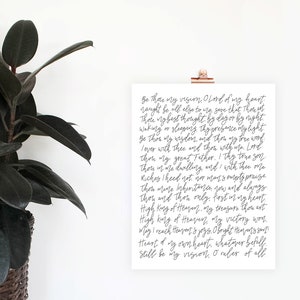 Be thou my vision, O Lord of my heart
naught be all else to me, save that thou art
thou my best thought, by day or by night
waking or sleeping, thy presence my light
Be thou my wisdom, and thou my true word
I ever with thee and thou with me, Lord
thou my great Father, I thy true son
thou in me dwelling, and I with thee one
Riches I heed not, nor man's empty praise
thou mine inheritance, now and always
thou and thou only, first in my heart
High King of Heaven, my treasure thou art
High King of Heaven, my victory won
May I reach Heaven's joys, O bright Heaven's sun!
Heart of my own heart, whatever befall
Still be my vision, O ruler of all